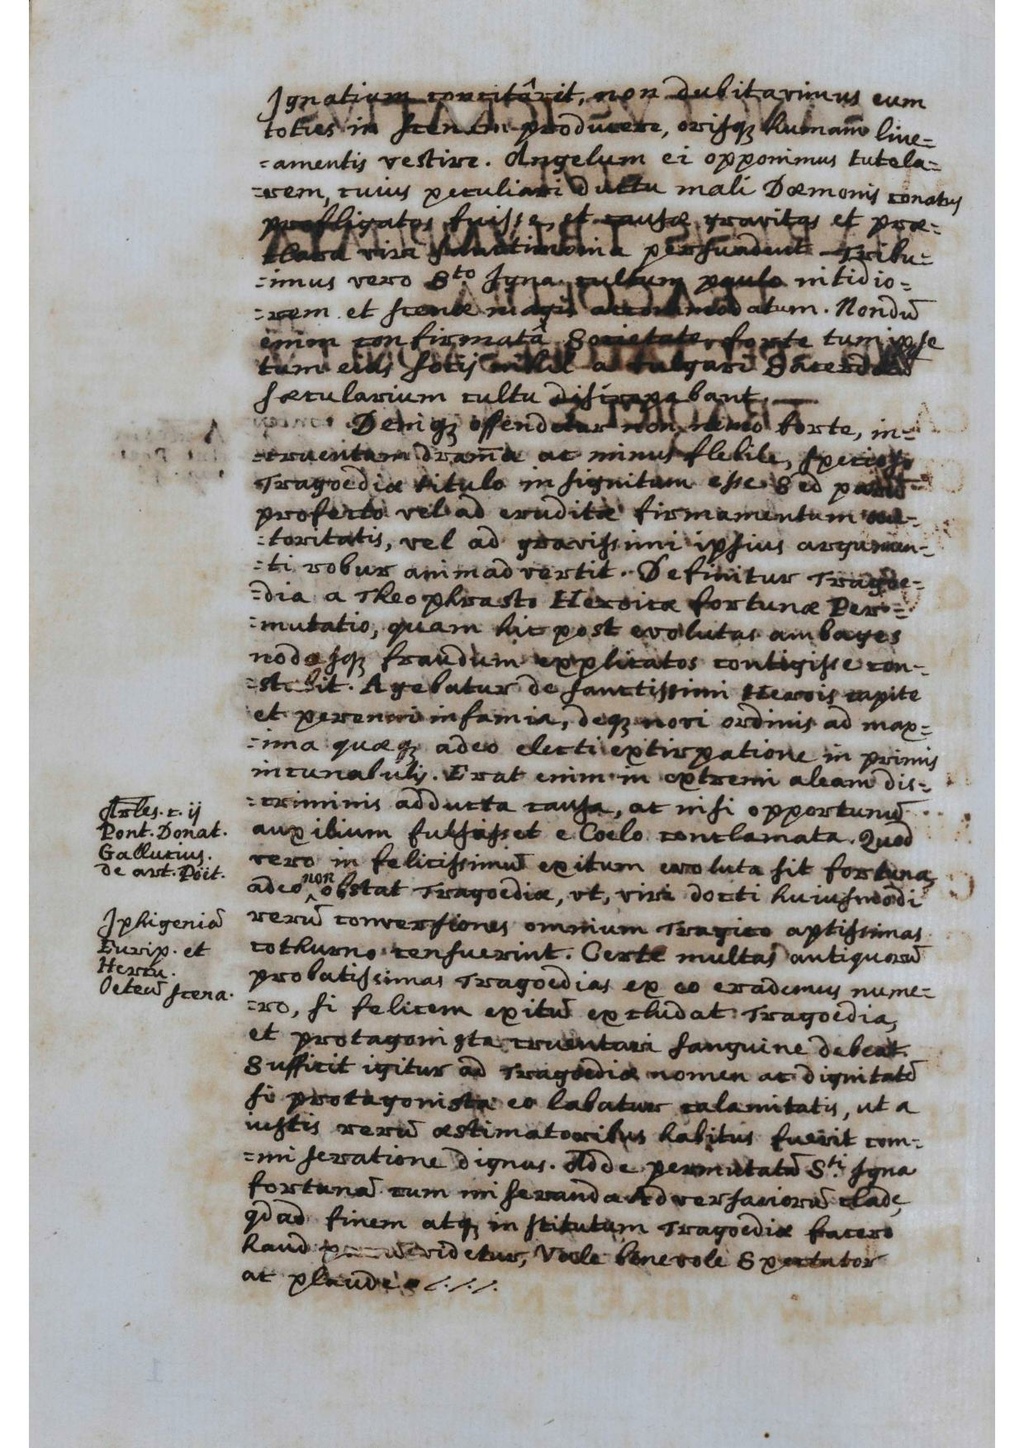 Ignatium concitârit, non dubitavimus eum
toties in scenam producere, orisqȝ humani line=
=amentis vestire. Angelum ei opponimus tutela=
=rem, cuius peculiari ductu mali Dæmonis conatus
profligatos fuisse, et causæ gravitas et præ=
clara viri sanctimonia persuadent. Tribu=
=imus vero Sto Igna. cultum paulo nitidio=
=rem et scenæ magis accommodatum. Nondū
enim confirmatâ Societate forte tum ipse
tum eius socij nihil a vulgari Sacerdotū
sæcularium cultu discrepabant.
Deniqȝ offendetur non nemo forte, in=
=cruentum drama ac minus flebile, specioso
Tragoediæ titulo insignitum esse. Sed parum
profecto vel ad eruditæ firmamentum auc=
=toritatis, vel ad gravissimi ipsius argumen=
=ti robur animadvertit. Definitur Tragoe=
=dia a Theophrasto Heroicæ fortunæ Per=
=mutatio, quam hic post evolutas ambages
nodosqȝ fraudum explicatos contigisse con=
=stabit. Agebatur de sanctissimi Herois capite
et perenni infamia, deqȝ novi ordinis ad max=
=ima quæqȝ adeo electi extirpatione in primis
incunabulis. Erat enim in extremi aleam dis=
=criminis adducta causa, ac nisi opportunū
auxilium fulsisset e Coelo conclamata. Quod
vero in felicissimū exitum evoluta sit fortuna,
adeo non obstat Tragoediæ, vt, viri docti huiusmodi
rerū conversiones omnium Tragico aptissimas
cothurno censuerint. Certe multas antiquorū
probatissimas Tragoedias ex eo erademus nume=
=ro, si felicem exitū excludat Tragoedia,
et protagonista cruentari sanguine debeat.
Sufficit igitur ad Tragoediæ nomen ac dignitatē
si protagonista eo labatur calamitatis, ut a
iustis rerū æstimatoribus habitus fuerit com=
=miseratione dignus. Adde permutatā Sti Igna
fortunā cum miseranda Adversariorū clade,
qd ad finem atqȝ institutum Tragoediæ facere
haud videtur, Vale benevole Spectator
ac plaude
Artles. c. ij
Pont. Donat.
Gallucius.
de art. Poët.
Iphigeniā
Eurip. et
Hercu.
Oeteū scena.